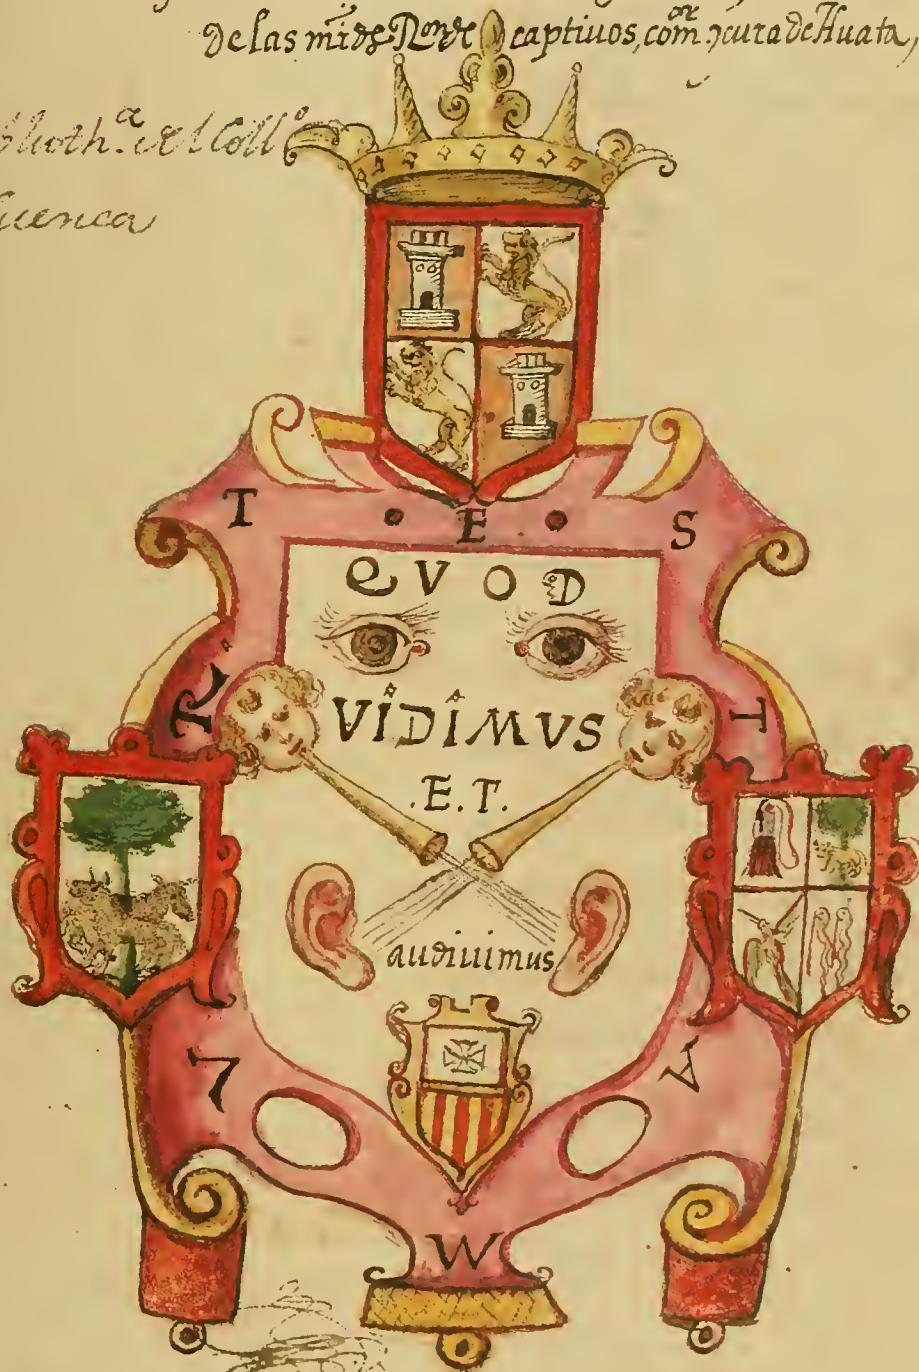 De las mrds Rone captiuos, comor y cura de Huata,
bliotha del Collo
Cuenca
T • E • S
QVOD
R T
VIDIMVS
.E.T.
audiuimus
V A
M